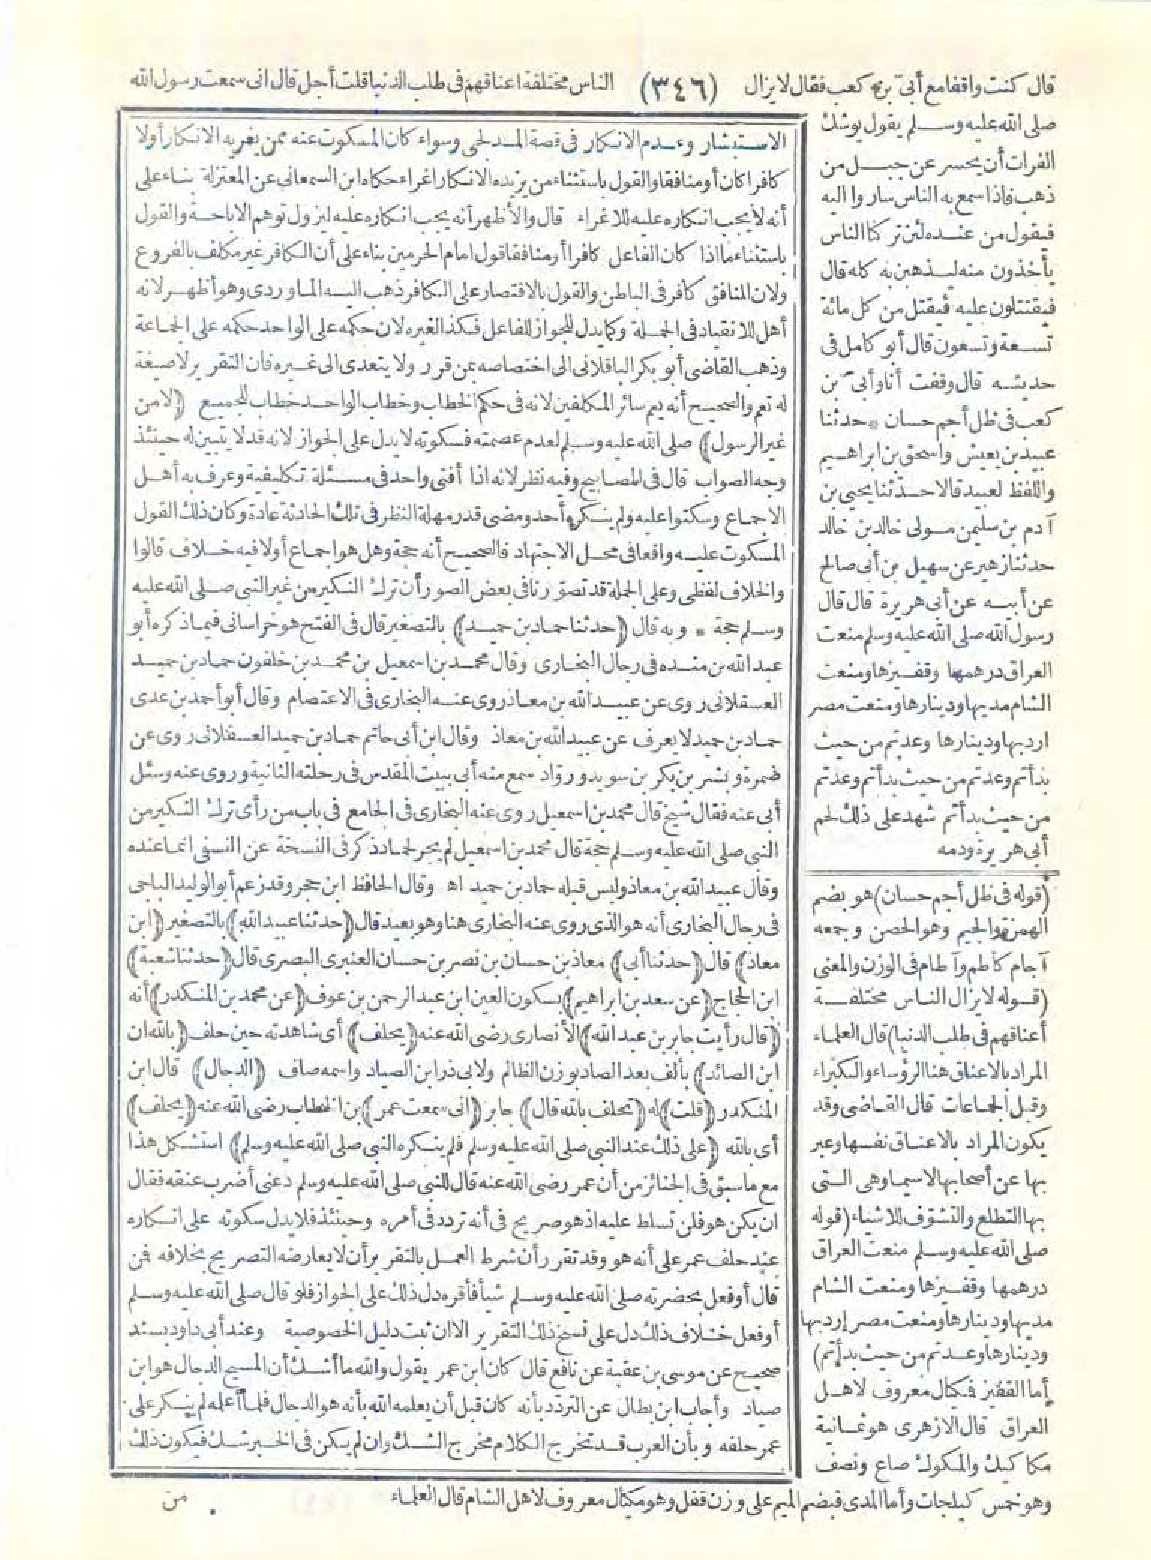 قال كنت واقفا مع أبي بن كعب فقال لا يزال (٣٤٦) الناس مختلفة اعناقهم في طلب الدنيا قلت أجل قال اني سمعت رسول الله
صلى الله عليه وسلم يقول يوشك
الفرات أن يحسر عن جبل من
ذهب فاذا سمع به الناس ساروا اليه
فيقول من عنده لئن تركنا الناس
يأخذون منه ليذهبن به كله قال
فيقتتلون عليه فيقتل من كل مائة
تسعة وتسعون قال أبو كامل في
حديثه قال وقفت أنا وأبي بن
كعب في ظل أجم حسان * حدثنا
عبيد بن يعيش واسحق بن ابراهيم
واللفظ لعبيد قالا حدثنا يحيى بن
آدم بن سليمن مولى خالد بن خالد
حدثنا زهير عن سهيل بن أبي صالح
عن أبيه عن أبي هريرة قال قال
رسول الله صلى الله عليه وسلم منعت
العراق درهمها وقفيزها ومنعت
الشام مديها ودينارها ومنعت مصر
اردبها ودينارها وعدتم من حيث
بدأتم وعدتم من حيث بدأتم وعدتم
من حيث بدأتم شهد على ذلك لحم
أبي هريرة ودمه
(قوله في ظل أجم حسان) هو بضم
الهمزة والجيم وهو الحصن وجمعه
آجام كأطم وآطام في الوزن والمعنى
(قوله لا يزال الناس مختلفة
أعناقهم في طلب الدنيا) قال العلماء
المراد بالاعناق هنا الرؤساء والكبراء
وقيل الجماعات قال القاضي وقد
يكون المراد بالاعناق نفسها وعبر
بها عن أصحابها لاسيما وهي التي
بها التطلع والتشوف للاشياء (قوله
صلى الله عليه وسلم منعت العراق
درهمها وقفيزها ومنعت الشام
مديها ودينارها ومنعت مصر إردبها
ودينارها وعدتم من حيث بدأتم)
أما القفيز فكيال معروف لاهل
العراق قال الازهري هو ثمانية
مكاكيك والمكوك صاع ونصف
وهو خمس كيلجات وأما المدى فبضم الميم على وزن قفل وهو مكيال معروف لاهل الشام قال العلماء
الاستبشار وعدم الانكار في قصة المدلجي وسواء كان المسكوت عنه ممن يغريه الانكار أولا
كافرا كان أو منافقا والقول باستثناء من يزيده الانكار اغراء حكاه ابن السمعاني عن المعتزلة بناء على
أنه لا يجب انكاره عليه للاغراء قال والأظهر أنه يجب انكاره عليه ليزول توهم الاباحة والقول
باستثناء ما اذا كان الفاعل كافرا أو منافقا قول امام الحرمين بناء على أن الكافر غير مكلف بالفروع
ولان المنافق كافر في الباطن والقول بالاقتصار على الكافر ذهب اليه الماوردي وهو أظهر لانه
أهل للانقياد في الجملة وكما يدل للجواز للفاعل فكذا لغيره لان حكمه على الواحد حكمه على الجماعة
وذهب القاضي أبو بكر الباقلاني الى اختصاصه بمن قرر ولا يتعدى الى غيره فان التقرير لا صيغة
له تعم والصحيح أنه يعم سائر المكلفين لانه في حكم الخطاب وخطاب الواحد خطاب للجميع (لا من
غير الرسول) صلى الله عليه وسلم لعدم عصمته فسكوته لا يدل على الجواز لانه قد لا يتبين له حينئذ
وجه الصواب قال في المصابيح وفيه نظر لانه اذا أفتى واحد في مسئلة تكليفية وعرف به أهل
الاجماع وسكتوا عليه ولم ينكره أحد ومضى قدر مهلة النظر في تلك الحادثة عادة وكان ذلك القول
المسكوت عليه واقعا في محل الاجتهاد فالصحيح أنه حجة وهل هو اجماع أولا فيه خلاف قالوا
والخلاف لفظي وعلى الجملة قد تصور نا في بعض الصور أن ترك النكير من غير النبي صلى الله عليه
وسلم حجة * وبه قال (حدثنا حماد بن حميد) بالتصغير قال في الفتح هو خراساني فيما ذكره أبو
عبد الله بن منده في رجال البخاري وقال محمد بن اسمعيل بن محمد بن خلفون حماد بن حميد
العسقلاني روى عن عبيد الله بن معاذ روى عنه البخاري في الاعتصام وقال أبو أحمد بن عدي
حماد بن حميد لا يعرف عن عبيد الله بن معاذ وقال ابن أبي حاتم حماد بن حميد العسقلاني روى عن
ضمرة وبشر بن بكر بن سويد ورواد سمع منه أبي ببيت المقدس في رحلته الثانية وروى عنه وسئل
أبي عنه فقال شيخ قال محمد بن اسمعيل روى عنه البخاري في الجامع في باب من رأى ترك النكير من
النبي صلى الله عليه وسلم حجة قال محمد بن اسمعيل لم يجر لحماد ذكر في النسخة عن النسفي انما عنده
وقال عبيد الله بن معاذ وليس قبله حماد بن حميد اه وقال الحافظ ابن حجر وقد زعم أبو الوليد الباجي
في رجال البخاري أنه هو الذي روى عنه البخاري هنا وهو بعيد قال (حدثنا عبيد الله) بالتصغير (ابن
معاذ) قال (حدثنا أبي) معاذ بن حسان بن نصر بن حسان العنبري البصري قال (حدثنا شعبة)
ابن الحجاج (عن سعد بن ابراهيم) بسكون العين ابن عبد الرحمن بن عوف (عن محمد بن المنكدر) أنه
(قال رأيت جابر بن عبد الله) الأنصاري رضي الله عنه (يحلف) أي شاهدته حين حلف (بالله ان
ابن الصائد) بألف بعد الصاد بوزن الظالم ولابي ذر ابن الصياد واسمه صاف (الدجال) قال ابن
المنكدر (قلت) له (تحلف بالله قال) جابر (اني سمعت عمر) بن الخطاب رضي الله عنه (يحلف)
أي بالله (على ذلك عند النبي صلى الله عليه وسلم فلم ينكره النبي صلى الله عليه وسلم) استشكل هذا
مع ما سبق في الجنائز من أن عمر رضي الله عنه قال للنبي صلى الله عليه وسلم دعني أضرب عنقه فقال
ان يكن هو فلن تسلط عليه اذ هو صريح في أنه تردد في أمره وحينئذ فلا يدل سكوته على انكاره
عند حلف عمر على أنه هو وقد تقرر أن شرط العمل بالتقرير أن لا يعارضه التصريح بخلافه فمن
قال أو فعل بحضرته صلى الله عليه وسلم شيأ فأقره دل ذلك على الجواز فلو قال صلى الله عليه وسلم
أو فعل خلاف ذلك دل على نسخ ذلك التقرير الا ان ثبت دليل الخصوصية وعند أبي داود بسند
صحيح عن موسى بن عقبة عن نافع قال كان ابن عمر يقول والله ما أشك أن المسيح الدجال هو ابن
صياد وأجاب ابن بطال عن التردد بأنه كان قبل أن يعلمه الله بأنه هو الدجال فلما أعلمه لم ينكر على
عمر حلفه وبأن العرب قد تخرج الكلام مخرج الشك وان لم يكن في الخبر شك فيكون ذلك
من